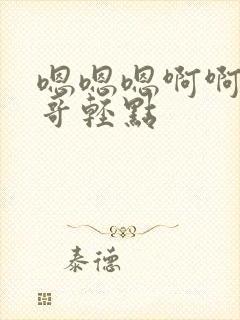 嗯嗯嗯啊啊
哥輕點
泰德